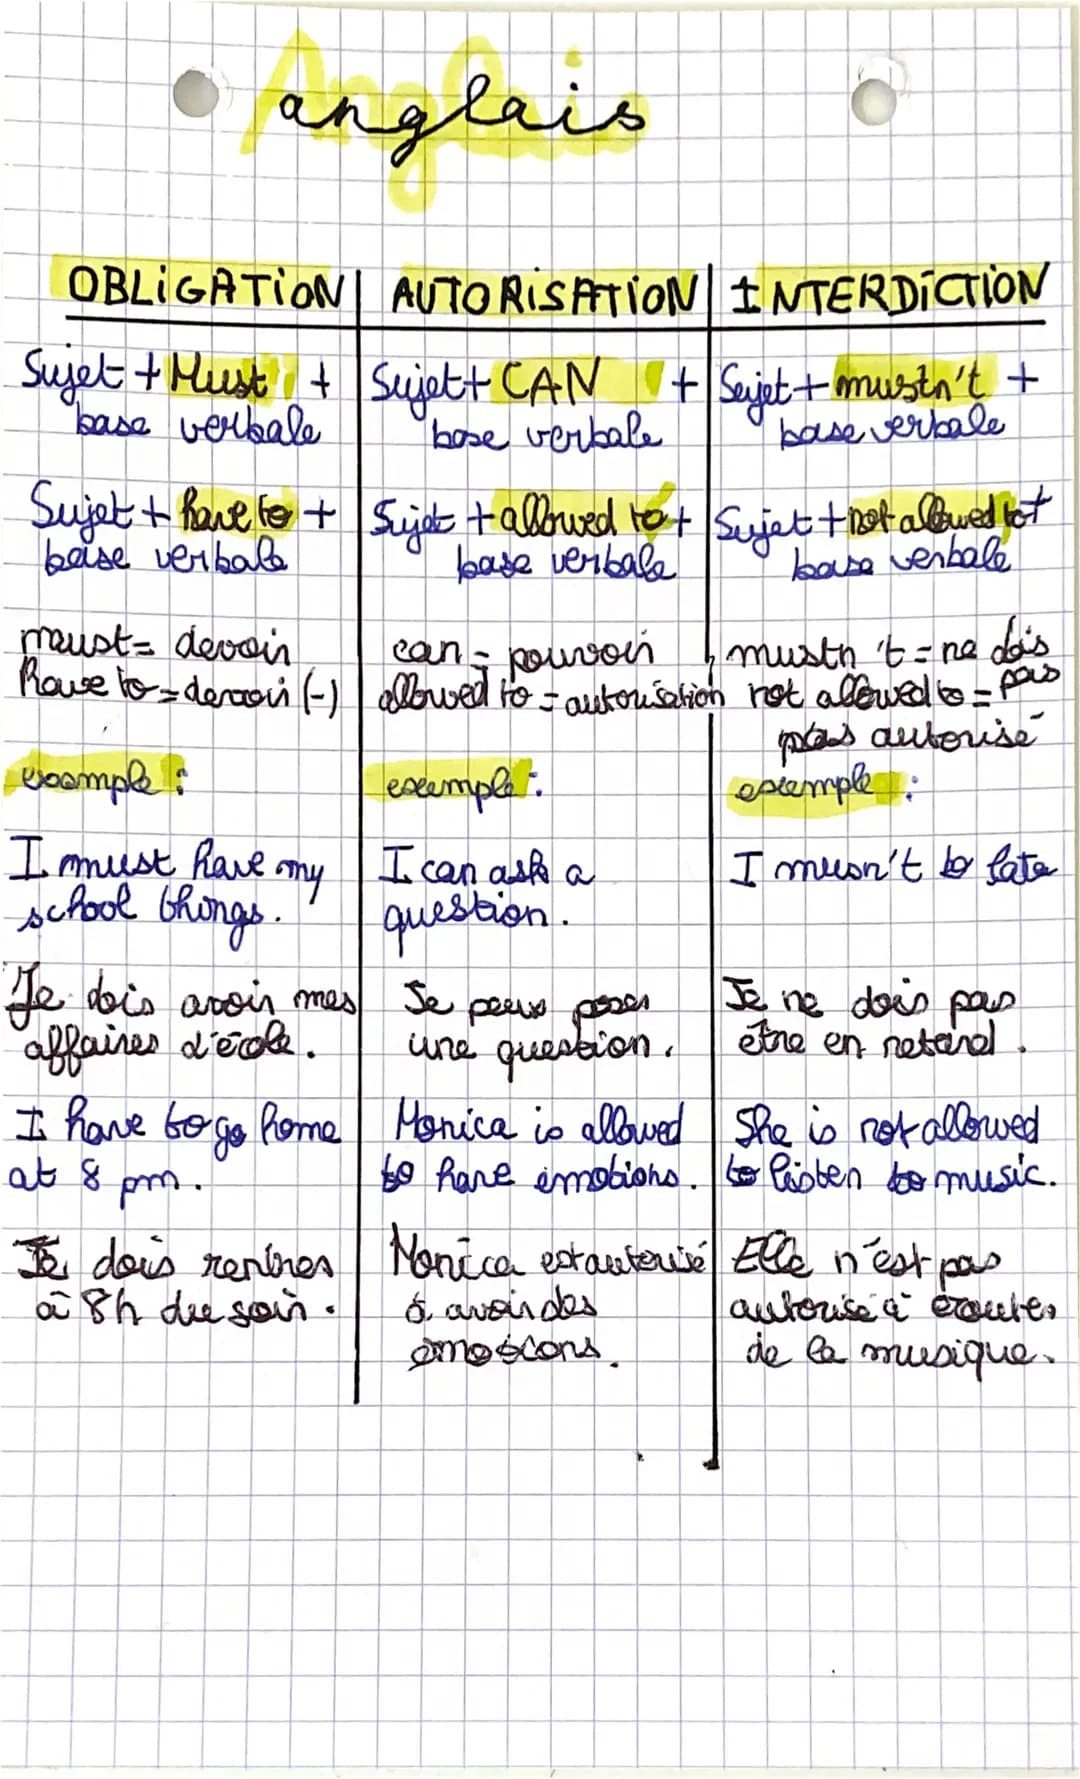 anglais
OBLIGATION
Sujet + Must +
base verbale
Sujet + have to +
base verbale
must = devoir
Have to = devoir (-)
example :
I must have my
school things.
Je dois avoir mes
affaires d'école.
I have to go home
at 8 pm.
Je dois rentrer
à 8h du soir.
AUTORISATION
Sujet + CAN +
base verbale
Sujet + allowed to +
base verbale
can = pouvoir
allowed to = autorisation
exemple :
I can ask a
question.
Je peux poser
une question.
Monica is allowed
to have emotions.
Monica est autorisé
à avoir des
émotions.
INTERDICTION
Sujet + mustn't +
base verbale
Sujet + not allowed to +
base verbale
mustn't = ne dois
pas
not allowed to =
pas autorisé
exemple :
I musn't be late
Je ne dois pas
être en retard.
She is not allowed
to listen to music.
Elle n'est pas
autorisé à écouter
de la musique.